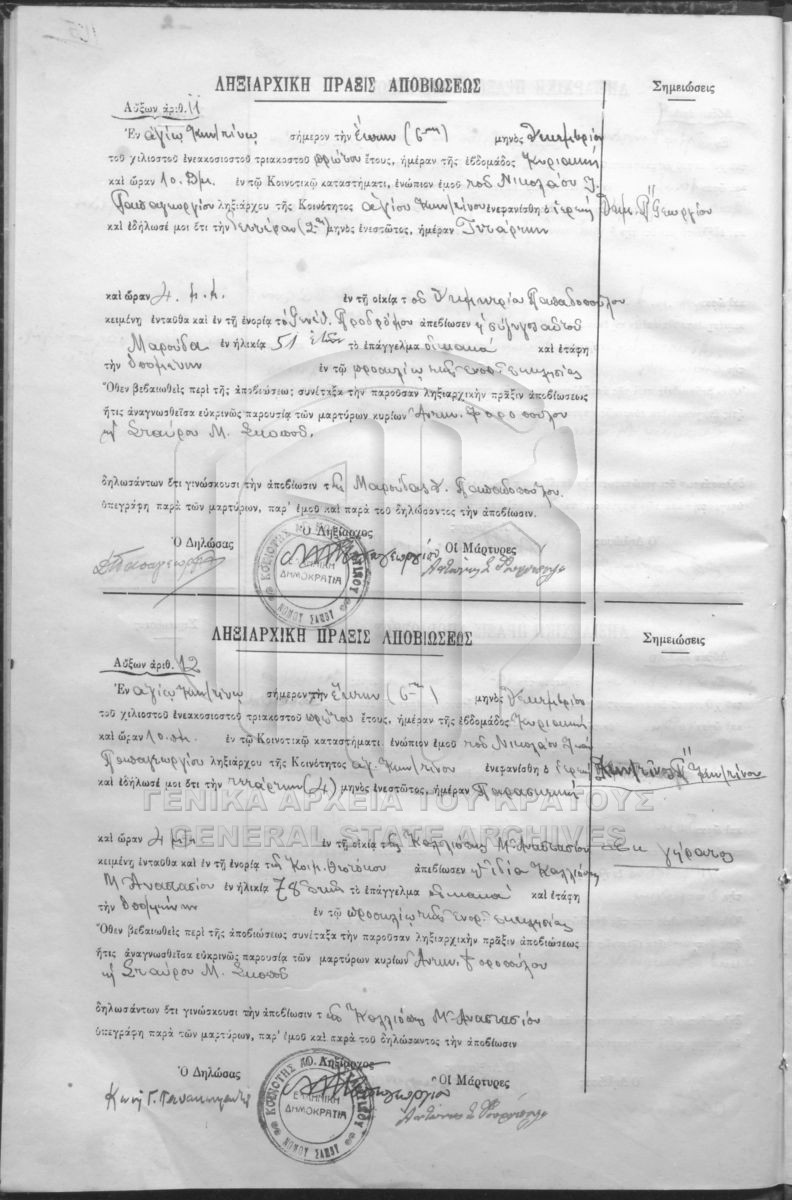 ΛΗΞΙΑΡΧΙΚΗ ΠΡΑΞΙΣ ΑΠΟΒΙΩΣΕΩΣ
Σημειώσεις
Αὔξων ἀριθ. 11
Ἐν ἁγίῳ Κων/τίνῳ σήμερον τὴν ἕκτην (6ην) μηνὸς Δεκεμβρίου
τοῦ χιλιοστοῦ ἐνεακοσιοστοῦ τριακοστοῦ πρώτου ἔτους, ἡμέραν τῆς ἑβδομάδος Κυριακὴν
καὶ ὥραν 10 π.μ. ἐν τῷ Κοινοτικῷ καταστήματι, ἐνώπιον ἐμοῦ τοῦ Νικολάου
Παπαγεωργίου ληξιάρχου τῆς Κοινότητος ἁγίου Κων/τίνου ἐνεφανίσθη ὁ ἱερεὺς Δημ. Π Γεωργίου
καὶ ἐδήλωσέ μοι ὅτι τὴν δευτέραν (2αν) μηνὸς ἐνεστῶτος, ἡμέραν Τετάρτην
καὶ ὥραν 4 π.μ. ἐν τῇ οἰκίᾳ τοῦ Δημητρίου Παπαδοπούλου
κειμένη ἐνταῦθα καὶ ἐν τῇ ἐνορίᾳ τοῦ Προδρόμου ἀπεβίωσεν ἡ σύζυγος αὐτοῦ
Μαρούδα ἐν ἡλικίᾳ 51 ἐτῶν τὸ ἐπάγγελμα οἰκιακὰ καὶ ἐτάφη
τὴν ἑπομένην ἐν τῷ προαυλίῳ τῆς ἐνορ. ἐκκλησίας
Ὅθεν βεβαιωθεὶς περὶ τῆς ἀποβιώσεως συνέταξα τὴν παροῦσαν ληξιαρχικὴν πρᾶξιν ἀποβιώσεως
ἥτις ἀναγνωσθεῖσα εὐκρινῶς παρουσίᾳ τῶν μαρτύρων κυρίων Ἀντων.
καὶ Σταύρου Μ.
δηλωσάντων ὅτι γινώσκουσι τὴν ἀποβίωσιν τῆς Μαρούδας Δ. Παπαδοπούλου.
ὑπεγράφη παρὰ τῶν μαρτύρων, παρ' ἐμοῦ καὶ παρὰ τοῦ δηλώσαντος τὴν ἀποβίωσιν.
Ὁ Δηλώσας Ὁ Ληξίαρχος Οἱ Μάρτυρες
ΕΛΛΗΝΙΚΗ ΔΗΜΟΚΡΑΤΙΑ
ΝΟΜΟΥ ΣΑΜΟΥ
ΛΗΞΙΑΡΧΙΚΗ ΠΡΑΞΙΣ ΑΠΟΒΙΩΣΕΩΣ
Σημειώσεις
Αὔξων ἀριθ. 12
Ἐν ἁγίῳ Κων/τίνῳ σήμερον τὴν ἕκτην (6ην) μηνὸς Δεκεμβρίου
τοῦ χιλιοστοῦ ἐνεακοσιοστοῦ τριακοστοῦ πρώτου ἔτους, ἡμέραν τῆς ἑβδομάδος Κυριακὴν
καὶ ὥραν 10 π.μ. ἐν τῷ Κοινοτικῷ καταστήματι ἐνώπιον ἐμοῦ τοῦ Νικολάου
Παπαγεωργίου ληξιάρχου τῆς Κοινότητος ἁγ. Κων/τίνου ἐνεφανίσθη ὁ ἱερεὺς
καὶ ἐδήλωσέ μοι ὅτι τὴν τετάρτην (4) μηνὸς ἐνεστῶτος, ἡμέραν Παρασκευὴν
ΓΕΝΙΚΑ ΑΡΧΕΙΑ ΤΟΥ ΚΡΑΤΟΥΣ
GENERAL STATE ARCHIVES
καὶ ὥραν 4 ἐν τῇ οἰκίᾳ τῆς Καλλιόπης Μ. Ἀναστασίου ἐκ γήρατος
κειμένη ἐνταῦθα καὶ ἐν τῇ ἐνορίᾳ τῆς Κοιμ. Θεοτόκου ἀπεβίωσεν ἡ ἰδία Καλλιόπη
Μ. Ἀναστασίου ἐν ἡλικίᾳ 78 ἐτῶν τὸ ἐπάγγελμα οἰκιακὰ καὶ ἐτάφη
τὴν ἑπομένην ἐν τῷ προαυλίῳ τῆς ἐνορ. ἐκκλησίας
Ὅθεν βεβαιωθεὶς περὶ τῆς ἀποβιώσεως συνέταξα τὴν παροῦσαν ληξιαρχικὴν πρᾶξιν ἀποβιώσεως
ἥτις ἀναγνωσθεῖσα εὐκρινῶς παρουσίᾳ τῶν μαρτύρων κυρίων Ἀντων.
καὶ Σταύρου Μ.
δηλωσάντων ὅτι γινώσκουσι τὴν ἀποβίωσιν τῆς Καλλιόπης Μ. Ἀναστασίου
ὑπεγράφη παρὰ τῶν μαρτύρων, παρ' ἐμοῦ καὶ παρὰ τοῦ δηλώσαντος τὴν ἀποβίωσιν
Ὁ Δηλώσας Ὁ Ληξίαρχος Οἱ Μάρτυρες
ΕΛΛΗΝΙΚΗ ΔΗΜΟΚΡΑΤΙΑ
ΝΟΜΟΥ ΣΑΜΟΥ